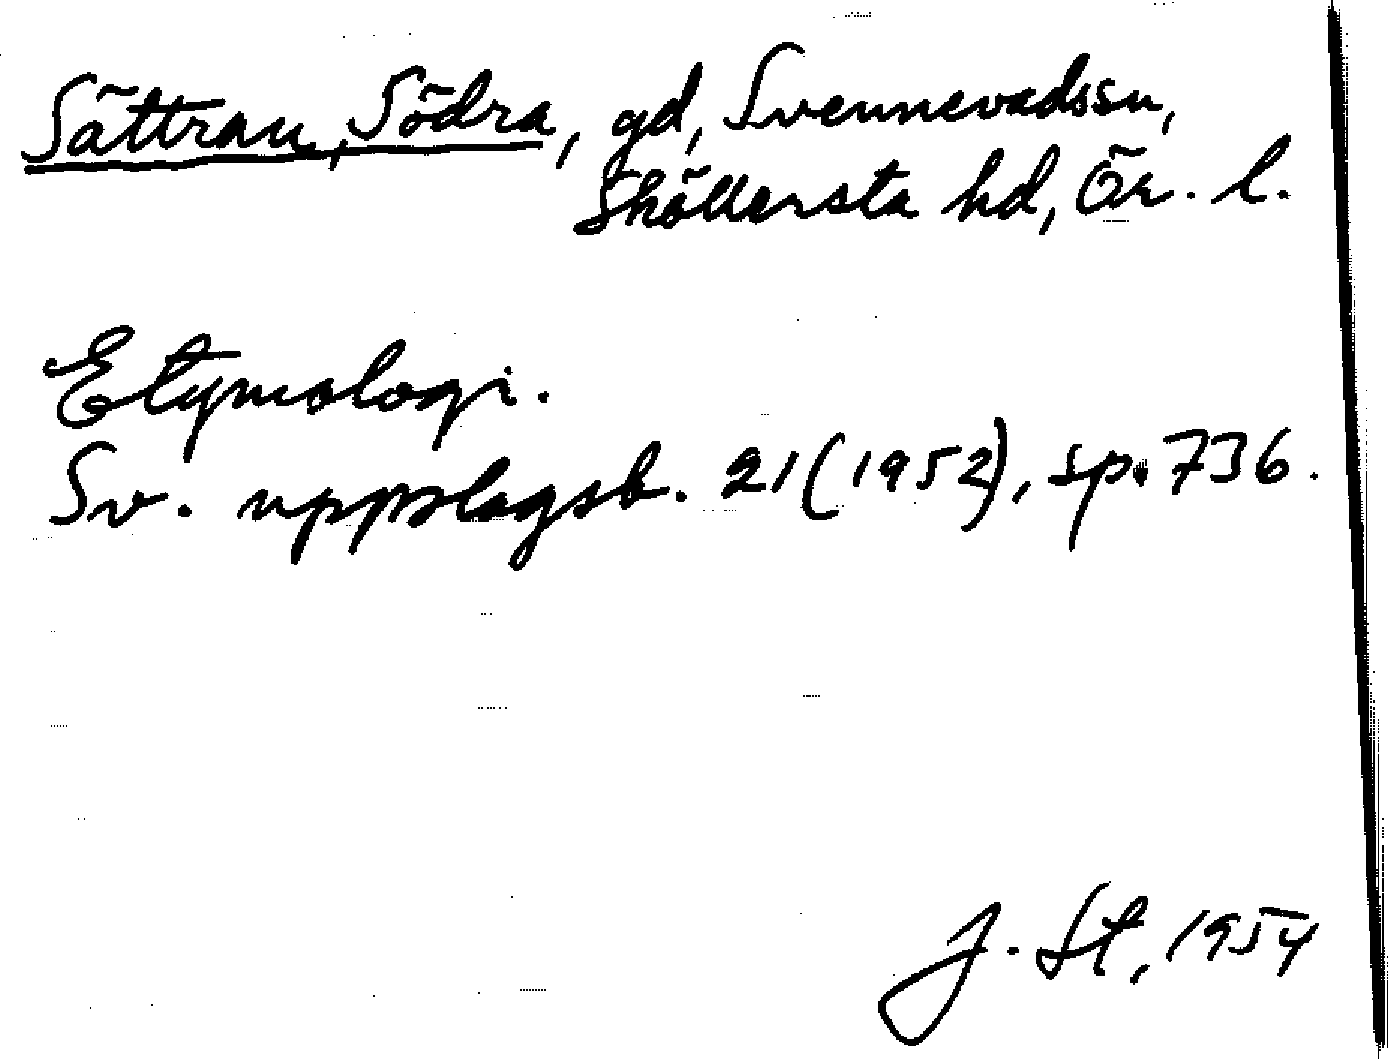 Sättran, Södra, gd, Svennevadssn,
Sköllersta hd, Ör. l.
Etymologi.
Sv. uppslagsb. 21 (1952), sp. 736.
J. St, 1954